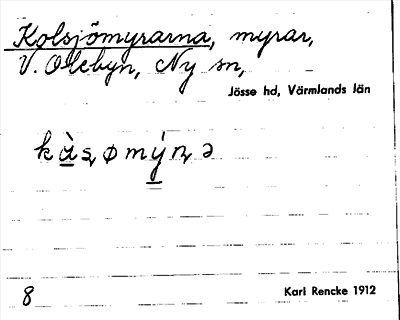 Kolsjömyrarna, myrar,
V. Olebyn, Ny sn,
Jösse hd, Värmlands län
kàʂømýɳə
8
Karl Rencke 1912